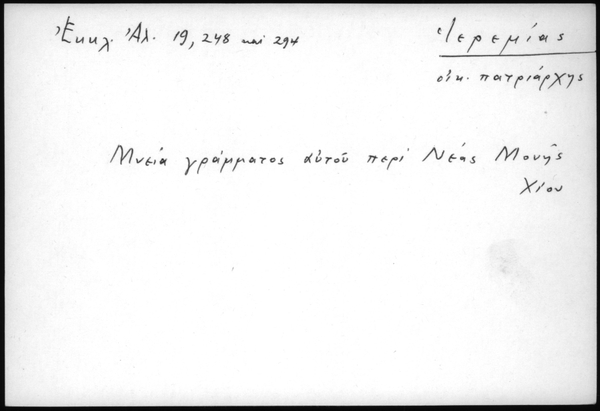 Ἐκκλ. Ἀλ. 19, 248 καὶ 294
Ἱερεμίας
οἰκ. πατριάρχης
Μνεία γράμματος αὐτοῦ περὶ Νέας Μονῆς
Χίου